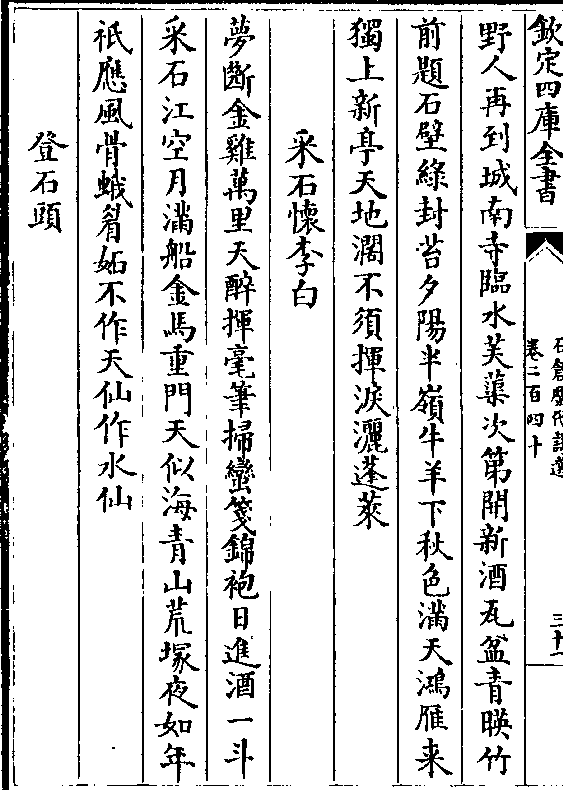 欽定四庫全書
石倉歷代詩選
卷二百四十
三十一
野人再到城南寺臨水芙蕖次第開新酒瓦盆青暎竹
前題石壁綠封苔夕陽半嶺牛羊下秋色滿天鴻雁来
獨上新亭天地濶不須揮淚灑蓬萊
采石懷李白
夢斷金雞萬里天醉揮毫筆掃蠻箋錦袍日進酒一斗
采石江空月滿船金馬重門天似海青山荒塚夜如年
祇應風骨蛾眉妬不作天仙作水仙
登石頭